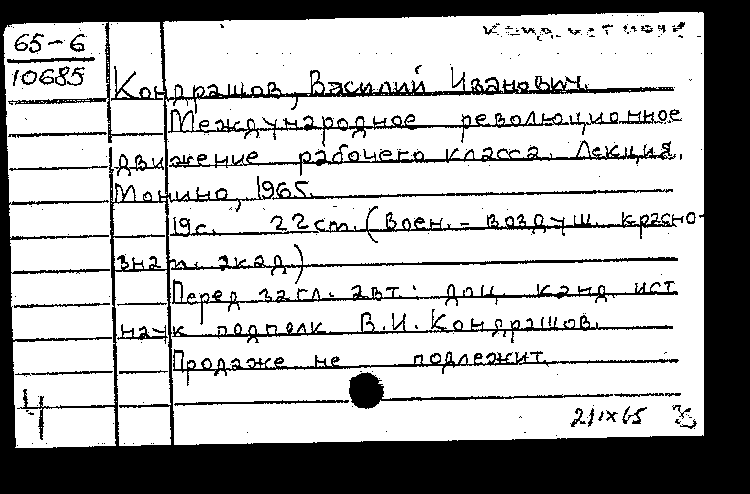 Канд. ист. наук
65-6
10685
Кондрашов, Василий Иванович.
Международное революционное
движение рабочего класса. Лекция.
Монино, 1965.
19с. 22 см. (Воен.-воздуш. красно-
знам. акад.)
Перед загл. авт.: доц. канд. ист.
наук подполк. В.И. Кондрашов.
Продаже не подлежит.
Ч
21/IX 65